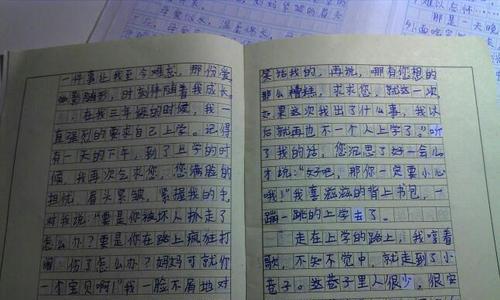 一件事让我至今难忘，那份爱
如影随形，时刻伴随着我成长。
在我三年级的时候，我一
直强烈的要求自己上学。记得
有一天的下午，到了上学的时
候，我再次乞求您，您满脸的
担忧，眉头紧皱，紧握我的手，
对我说："要是你被坏人拐走了
怎么办？要是你在路上疯狂打
闹，伤了怎么办？妈妈可就你
一个宝贝啊！"我一脸不屑地对
笑话我的，再说，哪有您想的
那么糟糕，求求您，就这一次，
如果这次我出了什么事，我以
后就再也不一个人上学了。"听
了我的话，您沉思了好一会儿
才说："好吧，那你一定要小心
哦！"我喜滋滋的背上书包，一
蹦一跳的上学去了。
走在上学的路上，我哼着
歌，不知不觉中，就走到了小
巷子。这巷子里人很少，很安